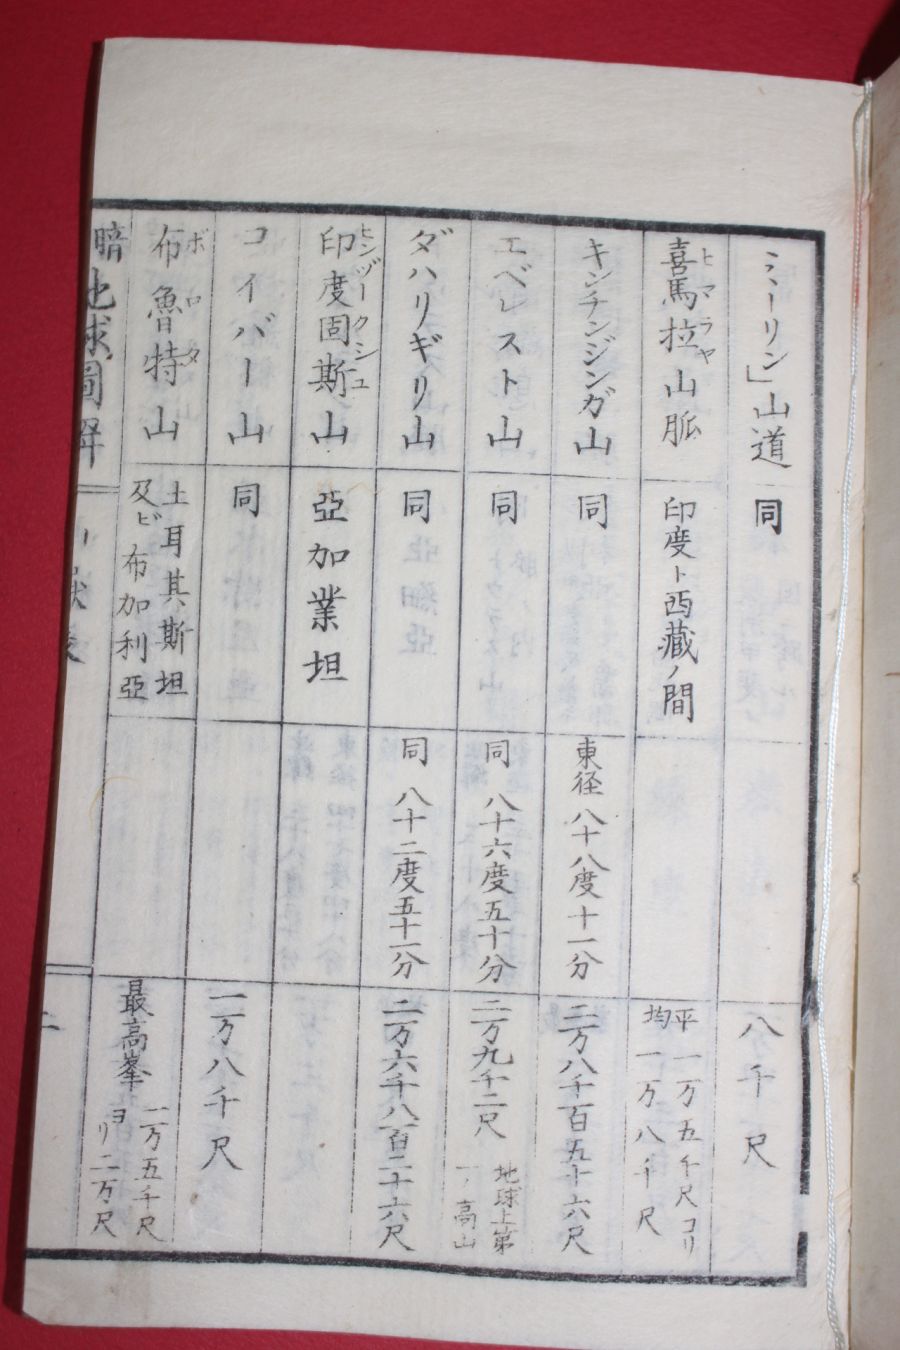 ミーリン」山道 同 八千尺
喜馬拉山脈 印度ト西藏ノ間 平均一万五千尺ヨリ一万八千尺
ヒマラヤ
キンチンジンガ山 同 東径八十八度十一分 二万八千百五十六尺
エベレスト山 同 同八十六度五十分 二万九千二尺 地球上第一ノ高山
ダハリギリ山 同 同八十二度五十一分 二万六千八百二十六尺
印度固斯山 亞加業坦
ヒンヅークシュ
コイバー山 同 二万八千尺
布魯特山 土耳其斯坦及ビ布加利亞 最高峯二万五千尺ヨリ二万尺
ボロタ
地球圖解
二